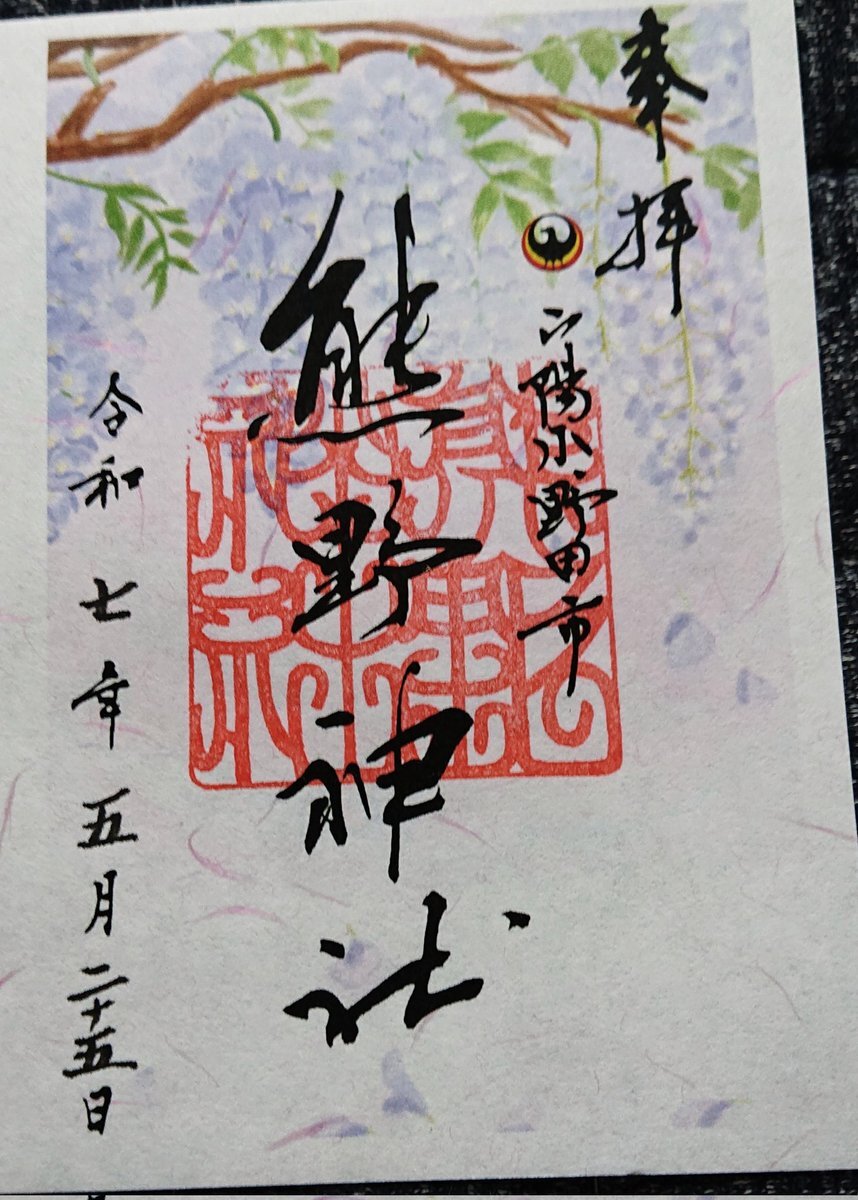 奉拝
山陽小野田市
熊野神社
令和七年五月二十五日